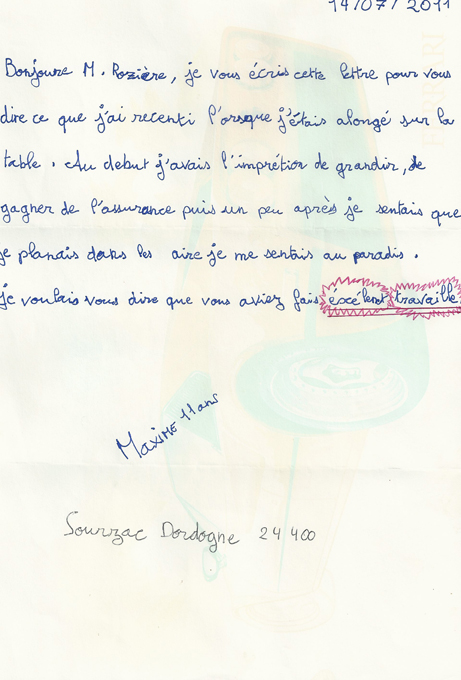 14/07/2011
Bonjoure M. Rozière, je vous écris cette lettre pour vous
dire ce que j'ai recenti l'orsque j'étais alongé sur la
table. Au debut j'avais l'imprétion de grandir, de
gagner de l'assurance puis un peu après je sentais que
je planais dans les aire je me sentais au paradis.
je voulais vous dire que vous aviez fais éxcélent travaille
Maxime 11 ans
Sourzac Dordogne 24 400